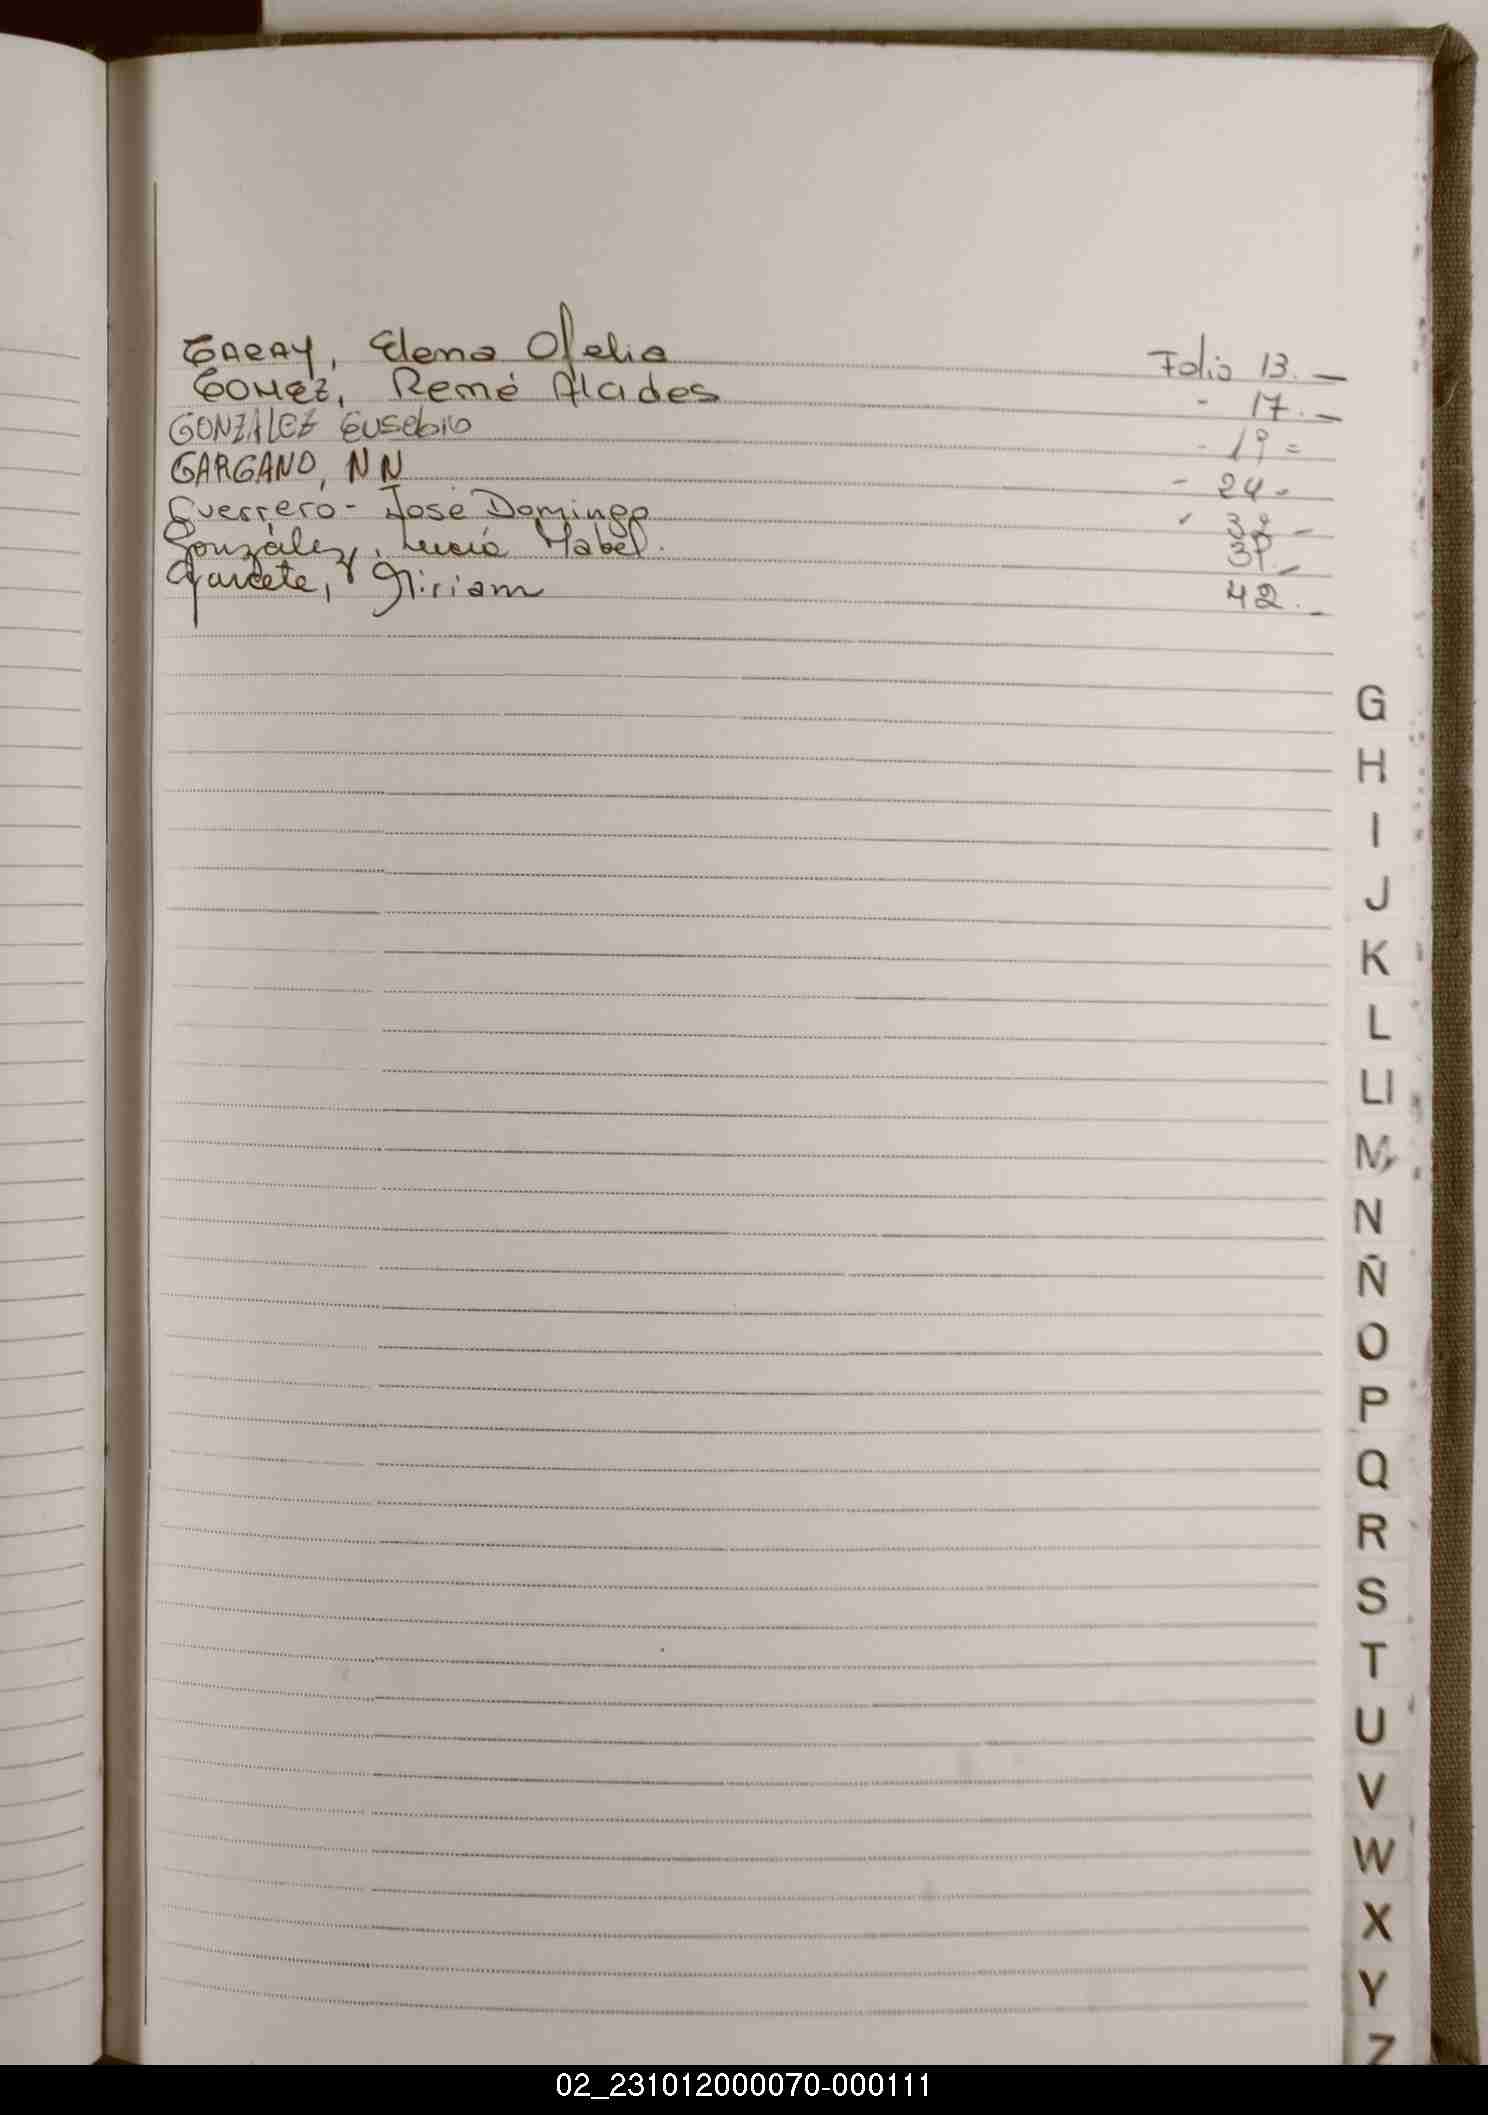 GARAY, Elena Ofelia Folio 13.—
GOMEZ, René Alcides - 17.—
GONZÁLEZ Eusebio - 19 =
GARGANO, NN - 24 -
Guerrero - José Domingo 32 -
González, Lucía Mabel. 39.-
Garcete, Miriam 42.-
G
H
I
J
K
L
Ll
M
N
Ñ
O
P
Q
R
S
T
U
V
W
X
Y
Z
02_231012000070-000111